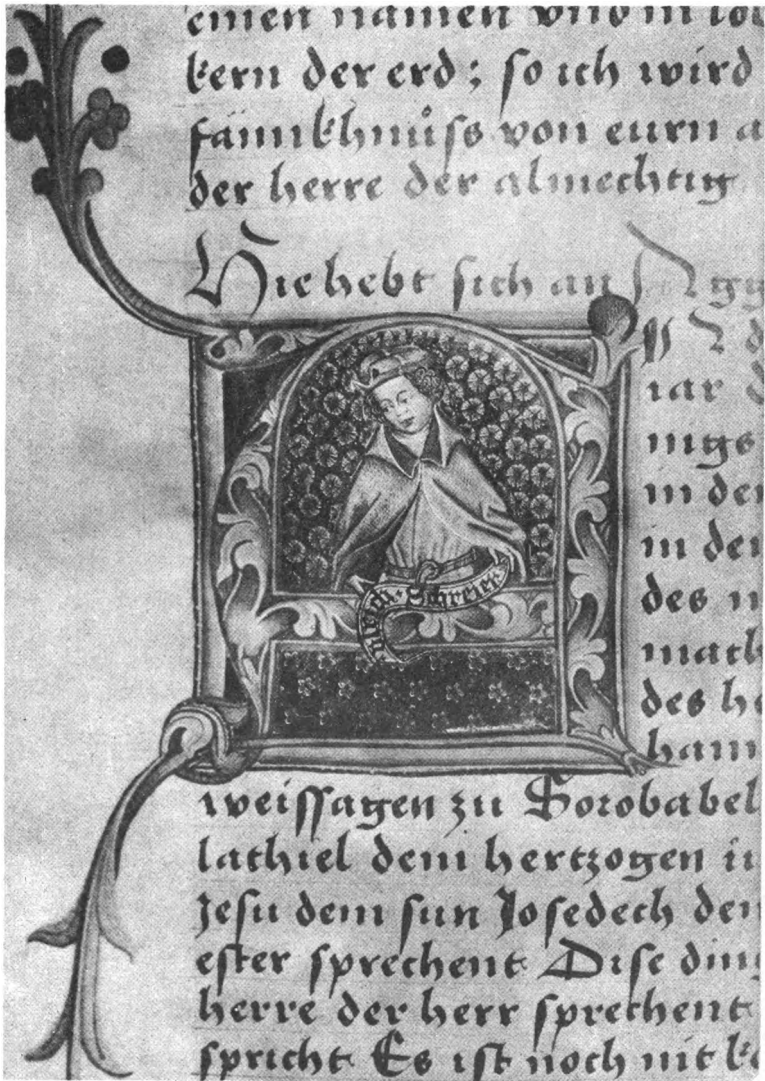 einen namen vnd in lob
kern der erd; so ich wird
fännkhnüss von eurn a
der herre der almechtig
Hie hebt sich an Agg
iar d
nigs
in der
in der
des
mach
des he
ham
ulrich · Schreier
weissagen zu Sorobabel
lathiel dem hertzogen in
Jesu dem sun Josedech den
ester sprechent Dise ding
herre der herr sprechent
spricht Es ist noch nit